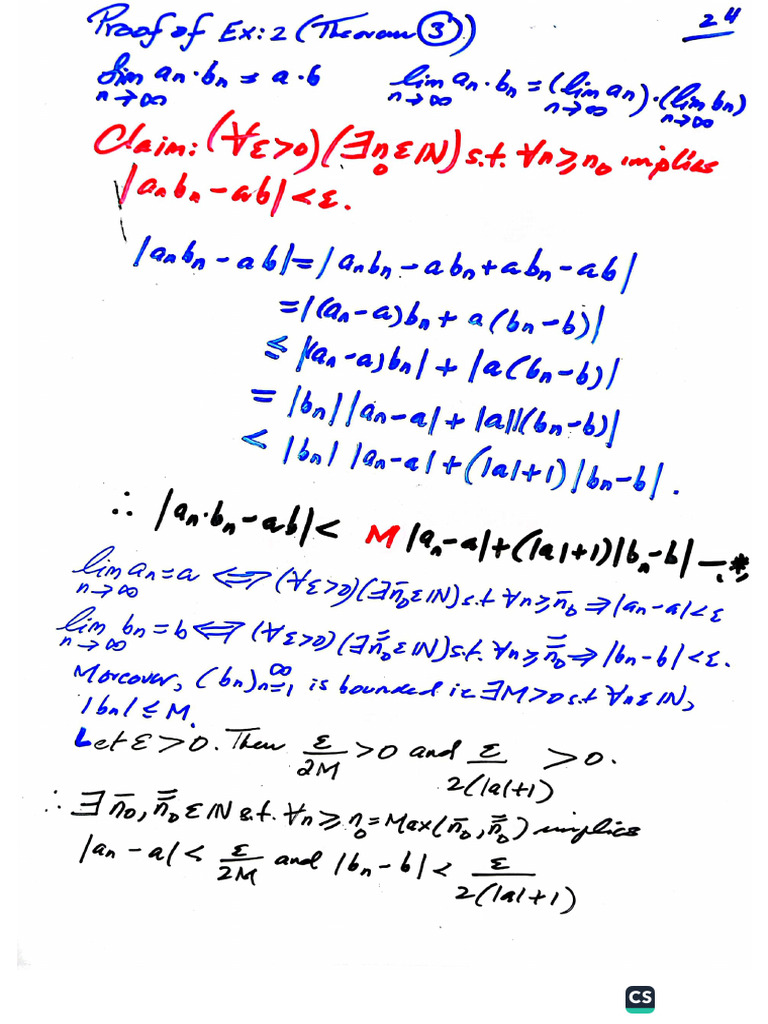 Proof of Ex: 2 (Theorem ③)
24
lim an·bn = a·b    lim an·bn = (lim an)·(lim bn)
n→∞    n→∞    n→∞    n→∞
Claim: (∀ε>0)(∃n₀∈ℕ) s.t. ∀n≥n₀ implies
|anbn − ab| < ε.
|anbn − ab| = |anbn − abn + abn − ab|
= |(an−a)bn + a(bn−b)|
≤ |(an−a)bn| + |a(bn−b)|
= |bn||an−a| + |a||(bn−b)|
< |bn| |an−a| + (|a|+1)|bn−b|.
∴ |an·bn−ab| < M|an−a|+(|a|+1)|bn−b| —*
lim an=a ⟺ (∀ε>0)(∃n̄₀∈ℕ) s.t ∀n≥n̄₀ ⇒ |an−a|<ε
n→∞
lim bn=b ⟺ (∀ε>0)(∃n̿₀∈ℕ) s.t. ∀n≥n̿₀ ⇒ |bn−b|<ε.
n→∞
Moreover, (bn)∞n=1 is bounded ie ∃M>0 s.t ∀n∈ℕ,
|bn| ≤ M.
Let ε>0. Then ε/2M >0 and ε/2(|a|+1) >0.
∴ ∃ n̄₀, n̿₀ ∈ ℕ s.t. ∀n≥n₀=Max(n̄₀, n̿₀) implies
|an−a| < ε/2M and |bn−b| < ε/2(|a|+1)
CS